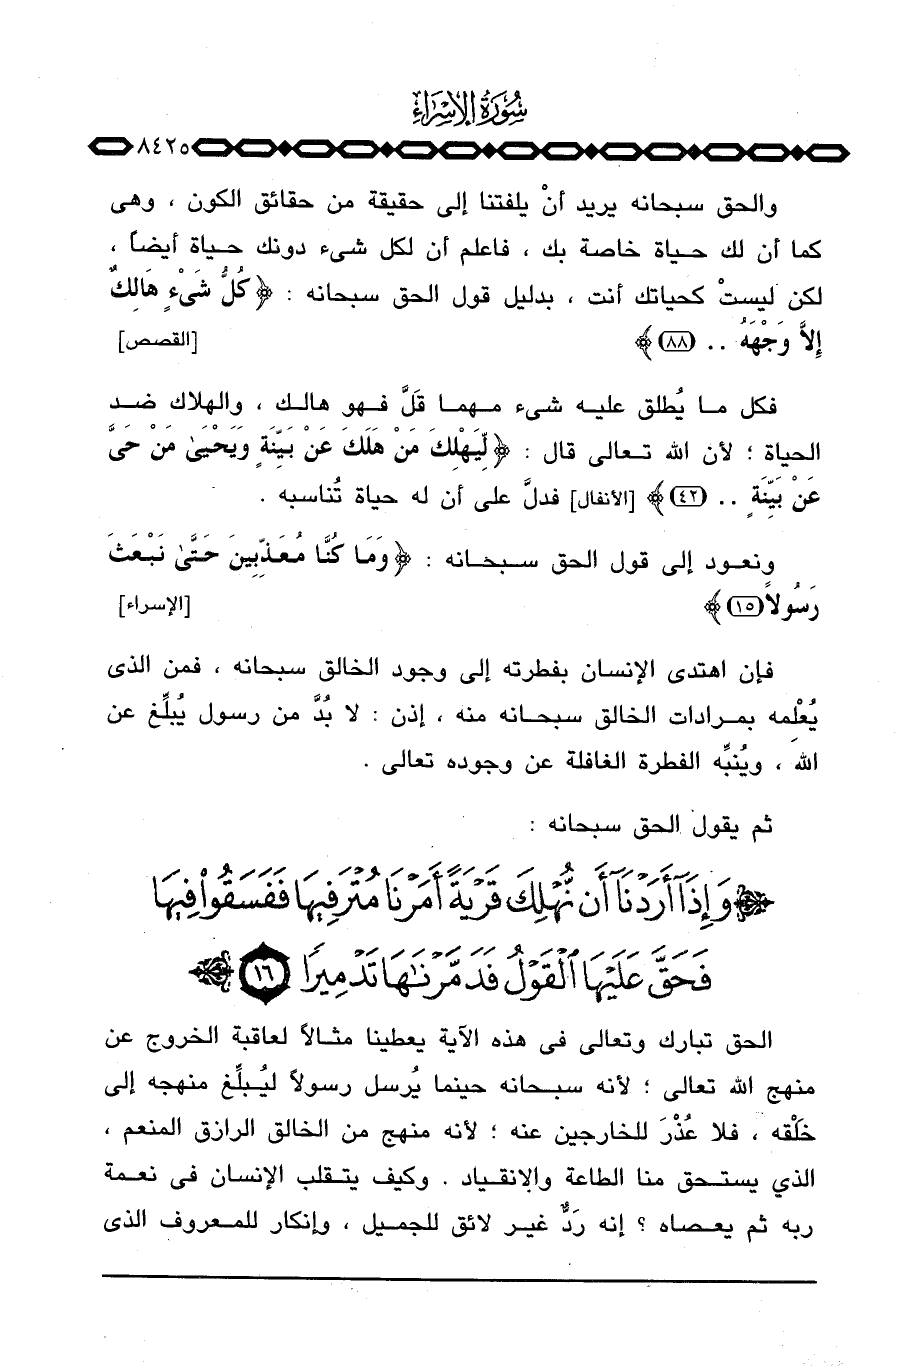 سُورَةُ الإِسْرَاءِ
٨٤٢٥
والحق سبحانه يريد أنْ يلفتنا إلى حقيقة من حقائق الكون ، وهى
كما أن لك حياة خاصة بك ، فاعلم أن لكل شىء دونك حياة أيضاً ،
لكن ليستْ كحياتك أنت ، بدليل قول الحق سبحانه : ﴿ كُلُّ شَىْءٍ هَالِكٌ
إِلاَّ وَجْهَهُ .. (٨٨) ﴾ [القصص]
فكل ما يُطلق عليه شىء مهما قَلَّ فهو هالك ، والهلاك ضد
الحياة ؛ لأن الله تعالى قال : ﴿ لِّيَهْلِكَ مَنْ هَلَكَ عَنْ بَيِّنَةٍ وَيَحْيَىٰ مَنْ حَىَّ
عَنْ بَيِّنَةٍ .. (٤٢) ﴾ [الأنفال] فدلَّ على أن له حياة تُناسبه .
ونعود إلى قول الحق سبحانه : ﴿ وَمَا كُنَّا مُعَذِّبِينَ حَتَّىٰ نَبْعَثَ
رَسُولاً (١٥) ﴾ [الإسراء]
فإن اهتدى الإنسان بفطرته إلى وجود الخالق سبحانه ، فمن الذى
يُعْلمه بمرادات الخالق سبحانه منه ، إذن : لا بُدَّ من رسول يُبلِّغ عن
الله ، ويُنبِّه الفطرة الغافلة عن وجوده تعالى .
ثم يقول الحق سبحانه :
﴿ وَإِذَآ أَرَدْنَآ أَن نُّهْلِكَ قَرْيَةً أَمَرْنَا مُتْرَفِيهَا فَفَسَقُوا۟ فِيهَا
فَحَقَّ عَلَيْهَا ٱلْقَوْلُ فَدَمَّرْنَٰهَا تَدْمِيرًا ١٦ ﴾
الحق تبارك وتعالى فى هذه الآية يعطينا مثالاً لعاقبة الخروج عن
منهج الله تعالى ؛ لأنه سبحانه حينما يُرسل رسولاً ليُبلِّغ منهجه إلى
خَلْقه ، فلا عُذْرَ للخارجين عنه ؛ لأنه منهج من الخالق الرازق المنعم ،
الذي يستحق منا الطاعة والانقياد . وكيف يتقلب الإنسان فى نعمة
ربه ثم يعصاه ؟ إنه رَدٌّ غير لائق للجميل ، وإنكار للمعروف الذى